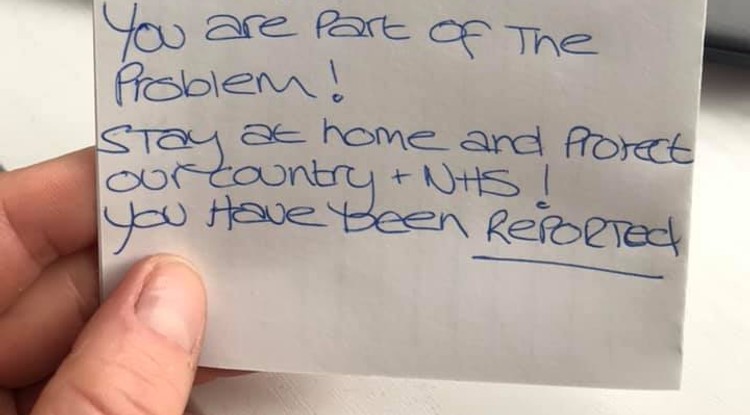 You are Part of The
Problem!
STay at home and Protect
our country + NHS!
you Have been RePORTed